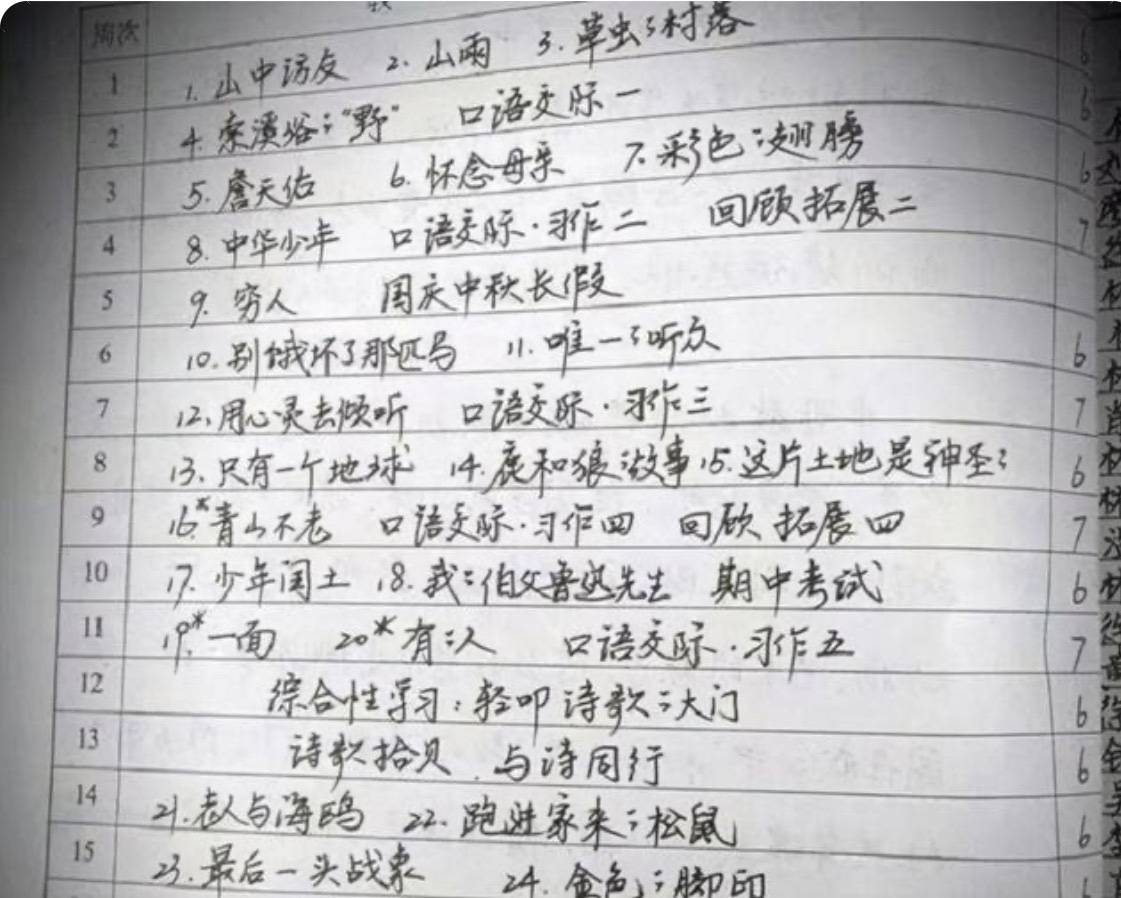 周次
1 1. 山中访友 2. 山雨 3. 草虫的村落 6
2 4. 索溪峪的“野” 口语交际一 6
3 5. 詹天佑 6. 怀念母亲 7. 彩色的翅膀 6
4 8. 中华少年 口语交际·习作二 回顾拓展二 7
5 9. 穷人 国庆中秋长假
6 10. 别饿坏了那匹马 11. 唯一的听众 6
7 12. 用心灵去倾听 口语交际·习作三 7
8 13. 只有一个地球 14. 鹿和狼的故事 15. 这片土地是神圣的 6
9 16.* 青山不老 口语交际·习作四 回顾拓展四 7
10 17. 少年闰土 18. 我的伯父鲁迅先生 期中考试 6
11 19.* 一面 20* 有的人 口语交际·习作五 7
12 综合性学习：轻叩诗歌的大门 6
13 诗歌拾贝、与诗同行 6
14 21. 老人与海鸥 22. 跑进家来的松鼠 6
15 23. 最后一头战象 24. 金色的脚印 6